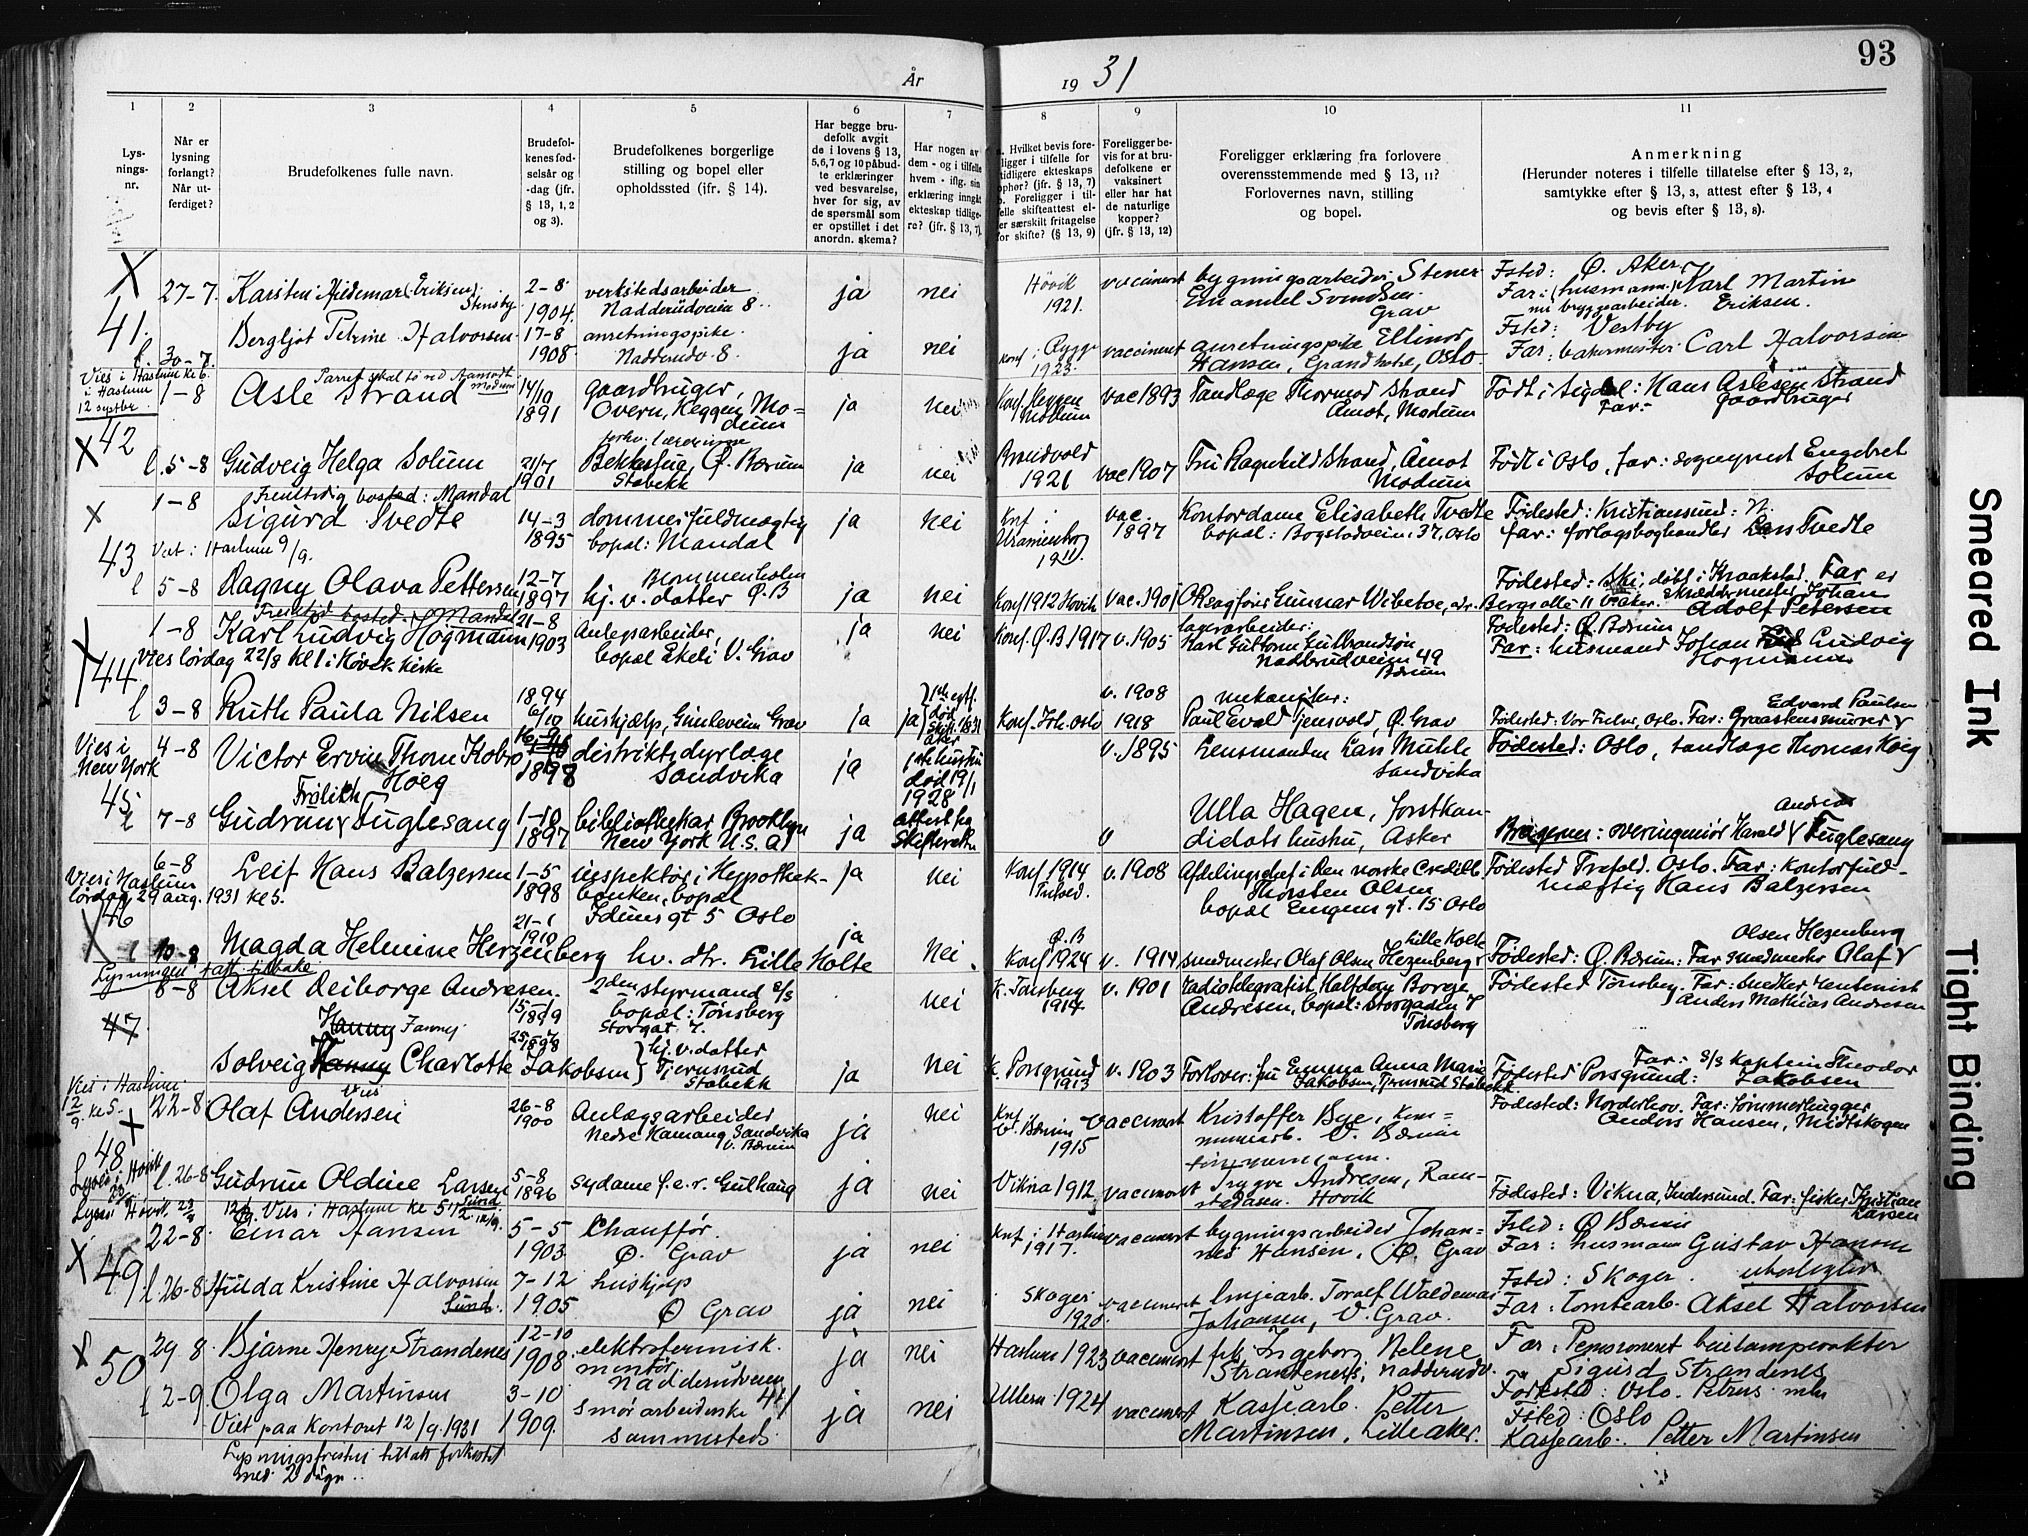 År 1931
93
1 2 3 4 5 6 7 8 9 10 11
Lysnings-nr.
Når er lysning forlangt? Når utferdiget?
Brudefolkenes fulle navn.
Brudefolkenes fødselsår og -dag (jfr. § 13, 1, 2 og 3).
Brudefolkenes borgerlige stilling og bopel eller opholdssted (jfr. § 14).
Har begge brudefolk avgit de i lovens § 13, 5, 6, 7 og 10 påbudte erklæringer ved besvarelse, hver for sig, av de spørsmål som er opstillet i det anordn. skema?
Har nogen av dem - og i tilfelle hvem - iflg. sin erklæring inngått ekteskap tidligere? (jfr. § 13, 7).
Hvilket bevis foreligger i tilfelle for tidligere ekteskaps ophør? (jfr. § 13, 7) b. Foreligger i tilfelle skifteattest eller særskilt fritagelse for skifte? (§ 13, 9)
Foreligger bevis for at brudefolkene er vaksinert eller har hat de naturlige kopper? (jfr. § 13, 12)
Foreligger erklæring fra forlovere overensstemmende med § 13, 11? Forlovernes navn, stilling og bopel.
Anmerkning (Herunder noteres i tilfelle tillatelse efter § 13, 2, samtykke efter § 13, 3, attest efter § 13, 4 og bevis efter § 13, 8).
X
41.
27-7. Karsten Hildemar (Eriksen) Stensby 2-8 1904. verkstedsarbeider Nadderudveien 8. ja nei Høvik 1921. vaccinert bygningsarbeider Stener Emanuel Svendsen Grav Fsted: Ø. Aker Far: (husmann) Karl Martin Eriksen. nu bryggearbeider.
l. 30-7. Bergljot Petrine Halvorsen 17-8 1908 anretningspike. Nadderudv. 8. ja nei Konf. i Rygge 1923. vaccineret anretningspike Ellinor Hansen, Grand hotel, Oslo Fsted: Vestby Far: bakermester Carl Halvorsen
Vies i Haslum
i Haslum
12 septbr
X 42
1-8 Asle Strand Modum 14/10 1891 gaardbruger, Overn, Heggen Modum ja nei Konf. Heggen Modum vac 1893 Tandlæge Thormod Strand Åmot, Modum Født i Sigdal: Far: Hans Aslesen Strand gaardbruger
l. 5-8 Gudveig Helga Solum 21/7 1901 forhv. lærerinne Bekkestua, Ø. Bærum Stabekk ja nei Brandvold 1921 vac 1907 Fru Ragnhild Strand, Åmot Modum Født i Oslo, far: sogneprest Engebret Solum
X
43
1-8 Fremtidig bosted: Mandal
Sigurd Tvedte 14-3 1895 dommerfuldmægtig bopæl: Mandal ja nei Knf. i Uranienborg 1911 vac. 1897 Kontordame Elisabeth Tvedte bopæl: Bogstadveien 37, Oslo Fødested: Kristianssund: N. far: forlagsboghandler Lars Tvedte
Viet i Haslum 9/9.
l 5-8 Ragny Olava Pettersen 12-7 1897 Blommenholm hj. v. datter Ø.B ja nei Konf 1912 Høvik vac. 1901 Gunnar Wibetoe, adr. Bergs alle 11 V. aker. Fødested: Ski, døbt i Kraakstad. Far er Skræddermester Johan Adolf Petersen
Fremtid. bosted. Mandal
X 44
1-8 Karl Ludvig Hogmann 21-8 1903 Anlegsarbeider, bopæl Ekeli V. Grav ja nei Konf. Ø.B 1917 v. 1905 lagerarbeider: Karl Guttorm Gulbrandsøn Nadderudveien 49 Bærum Fødested: Ø. Bærum Far: husmand Johan Ludvig Hogmann
Vies lørdag 22/8 kl 1 i Høvik kirke
l 3-8 Ruth Paula Nilsen 1894 6/10 hushjælp, Gunleveien Grav ja ja Konf. Joh. Oslo v. 1908 1918 mekaniker: Paul Evald Tjensvold, Ø. Grav Fødested: Vor Frelser, Oslo. Far: Graastensmurer Edvard Paulsen
Vies i New York
45
4-8 Victor Ervin Thom Kobro Hoeg 1898 distriktsdyrlæge Sandvika ja 1ste hustru død 19/1 1928 v. 1895 Lensmanden Lars Muhle Sandvika Fødested: Oslo, tandlæge Thomas Høeg
l 7-8 Gudrun Frølich Fuglesang 1-10 1897 bibliothekar Brooklyn New York U.S.A. ja attest fra Skifteretten v Ulla Hagen, forstkandidats hustru, Asker Bragernes: overingeniør Harald Andreas Fuglesang
Vies i Haslum lørdag 29 aug. 1931 kl 5.
46
X
6-8 Leif Hans Balzersen 1-5 1898 inspektør i Hypothekbanken, bopæl Iduns gt 5 Oslo ja nei Konf 1914 v. 1908 Afdelingschef i Den norske Creditb. Thorsten Olsen bopæl Eugens gt. 15 Oslo Fødested Trefold. Oslo. Far: Kontorfuldmægtig Hans Balzersen
l 10-8 Magda Helmine Herzenberg 21-1 1910 hv. dtr. Lille Holte ja Nei Ø.B Konf 1924 v. 1914 smedmester Olaf Olsen Hezenberg Lille Holte Fødested: Ø. Bærum: Far smedmester Olaf Olsen Hezenberg
Lysningen tatt tilbake
47
8-8 Aksel Reiborge Andresen. 15-1 1899 2den styrmand s/s bopæl: Tønsberg Storgat 7. nei K. Tønsberg 1914 v. 1901 Radiotelegrafist Halfdan Borge Andresen, bopæl: Storgaden 7 Tønsberg Fødested Tønsberg. Far: Snedker Rentenist Anders Mathias Andresen
Solveig Fanny Charlotte Jakobsen hj. v. datter Tjernsrud Stabekk ja nei K. Porsgrund 1913 v. 1903 Forlover: fru Emma Anna Marie Jakobsen, Tjernsrud Stabekk Fødested Porsgrund: Far: s/s Kaptein Theodor Jakobsen
Vies i Haslum 12/9. kl 5.
X
48
22-8 Olaf Vius Andersen 26-8 1900 Anlægsarbeider Nedre Hamang Sandvika V. Bærum ja nei Knf V. Bærum 1915 vaccinert Kristoffer Bye, kommunearb. V. Bærum Fødested: Norderhov. Far: Tømmerhugger Anders Hansen, Midtskogen
Lyses i Høvik 23/8
l. 26-8 Gudrun Oldine Larsen 5-8 1896 sydame f.e.r. Gulhaug ja nei Vikna 1912 vaccinert tømmermann. Trygve Andresen, Ramstadåsen. Høvik Fødested: Vikna, Indersund. Far: fisker Kristian Larsen
Vies i Haslum kl 5 1/2 12/9.
X 49
22-8. Einar Hansen 5-5 1903. Chauffør. Ø. Grav ja nei Knf i Haslum 1917. vaccinert bygningsarbeider Johannes Hansen, Ø. Grav Fsted: Ø Bærum Far: husmann Gustav Hansen
l. 26-8 Hulda Kristine Halvorsen Lund. 7-12 1905 hushjelp Ø Grav ja nei Skoger 1920. vaccineret linjearb. Toralf Waldemar Johansen, V. Grav. Fsted: Skoger. Far: Tomtearb. Aksel Halvorsen
X 50
29 8. Bjarne Henry Strandenes 12-10 1908 elektrotermisk. montør. Nadderudveien 41 ja nei Haslum 1923 vaccinert frk. Ingeborg Helene Strandenes, Nadderudv. Far: Pensioneret Sigurd Strandenes Fødested: Oslo.
l 2-9 Olga Martinsen 3-10 1909. Smørarbeiderske sammesteds. ja nei Ullern 1924 vaccinert Kassearb. Petter Martinsen, Lilleaker. Fsted: Oslo Kassearb. Petter Martinsen
Viet paa Kontoret 12/9. 1931
Lysningsfristen tillatt forkortet med 2 dager.
Smeared Ink
Tight Binding